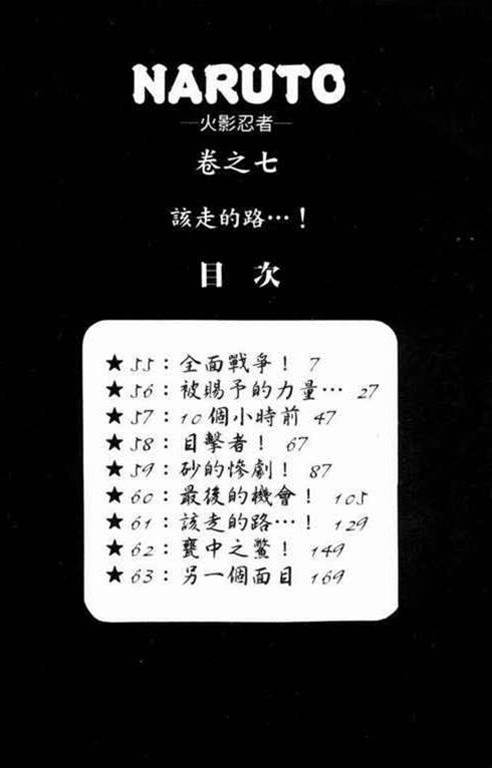 NARUTO
—火影忍者—
卷之七
該走的路…！
目 次
★55：全面戰爭！ 7
★56：被賜予的力量… 27
★57：10個小時前 47
★58：目擊者！ 67
★59：砂的慘劇！ 87
★60：最後的機會！ 105
★61：該走的路…！ 129
★62：甕中之鱉！ 149
★63：另一個面目 169